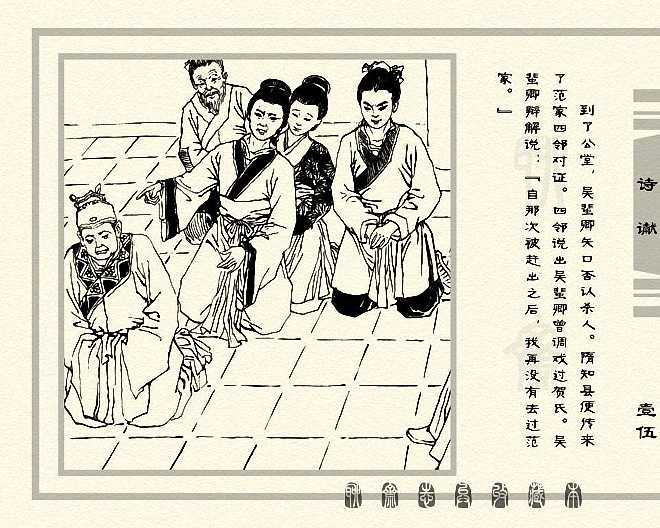 到了公堂，吴蜚卿矢口否认杀人。隋知县便传来
了范家四邻对证。四邻说出吴蜚卿曾调戏过贺氏。吴
蜚卿辩解说：“自那次被赶出之后，我再没有去过范
家。”
诗谳
壹伍